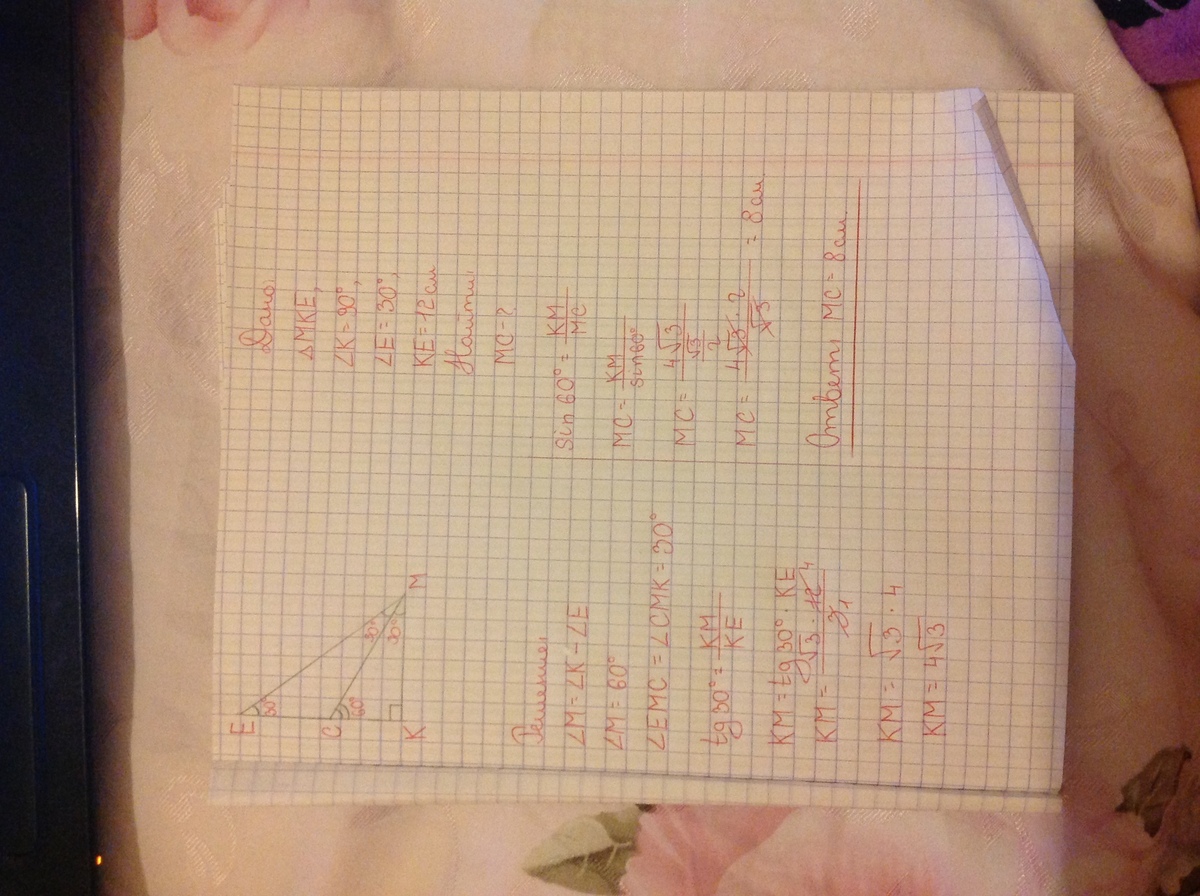 E
30°
C
60°
K
30°
30°
M
Дано:
△MKE,
∠K = 90°,
∠E = 30°,
KE = 12 см
Найти:
MC = ?
Решение:
∠M = ∠K - ∠E
∠M = 60°
∠EMC = ∠CMK = 30°
tg 30° = KM/KE
KM = tg 30° · KE
KM = √3 · 12 4 / 3 1
KM = √3 · 4
KM = 4√3
sin 60° = KM/MC
MC = KM/sin 60°
MC = 4√3 / (√3/2)
MC = 4√3 · 2 / √3 = 8 см.
Ответ: MC = 8 см.